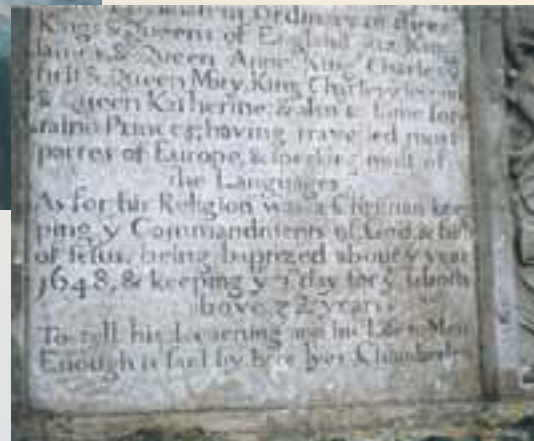 in Ordinary to three
Kings & Queens of England, viz. King
James & Queen Anne, King Charles ye
first & Queen Mary, King Charles ye second
& Queen Katherine, & also to some for
raing Princes; having travelled most
partes of Europe, & speaking most of
the Languages
As for his Religion was a Christian kee
ping ye Commandments of God & faith
of Jesus, being baptized about ye year
1648, & keeping ye 7 day for ye Saboth
above 32 years
To tell his Learning and his Life to Men
Enough is said by here lyes Chamberlen